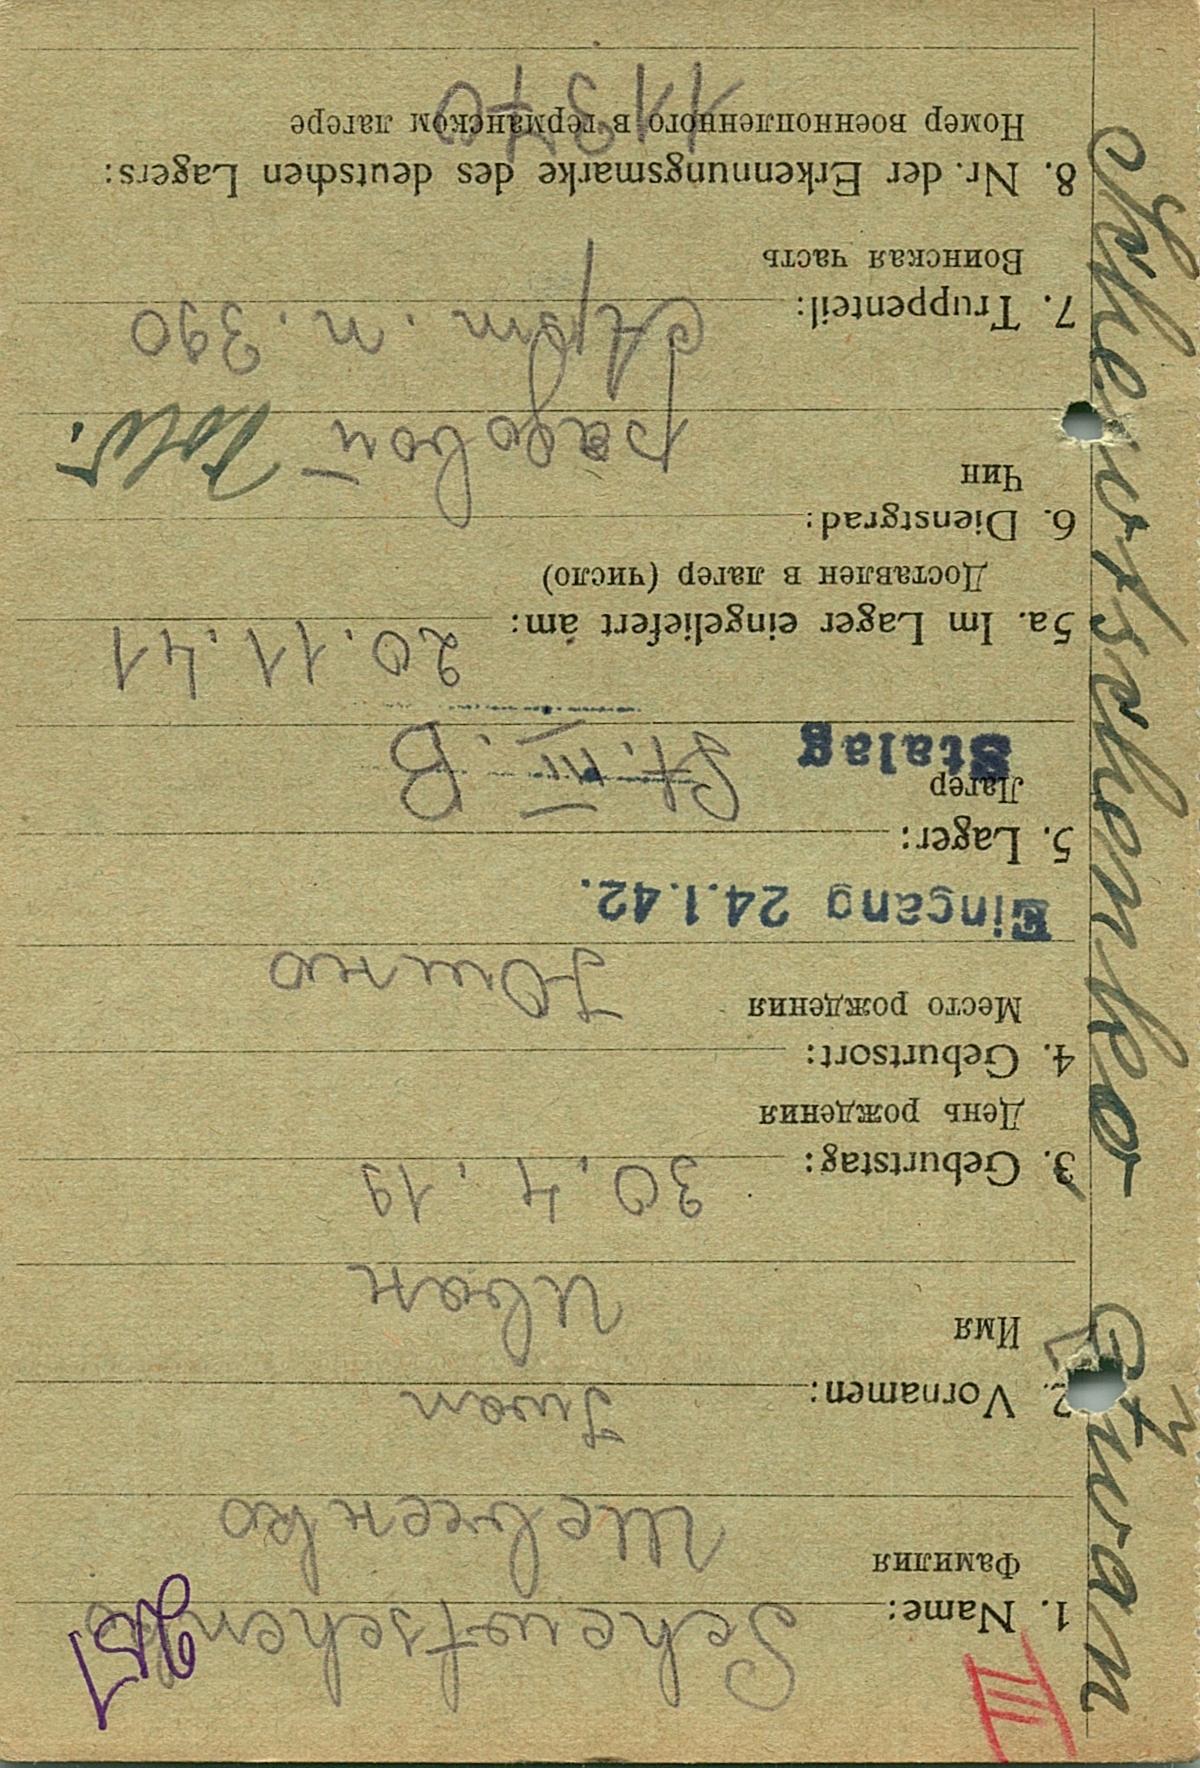 III
951
1. Name: Schewtschenko
Фамилия Шевченко
2. Vornamen: Iwan
Имя Иван
3. Geburtstag: 30.4.19
День рождения
4. Geburtsort:
Место рождения
Eingang 24.1.42.
5. Lager: St. III. B
Лагер
Stalag
5a. Im Lager eingeliefert am: 20.11.41
Доставлен в лагер (число)
6. Dienstgrad: рядовой
Чин
7. Truppenteil: п. 390
Воинская часть
8. Nr. der Erkennungsmarke des deutschen Lagers:
Номер военнопленного в германском лагере
11370
Schewtschenko Iwan